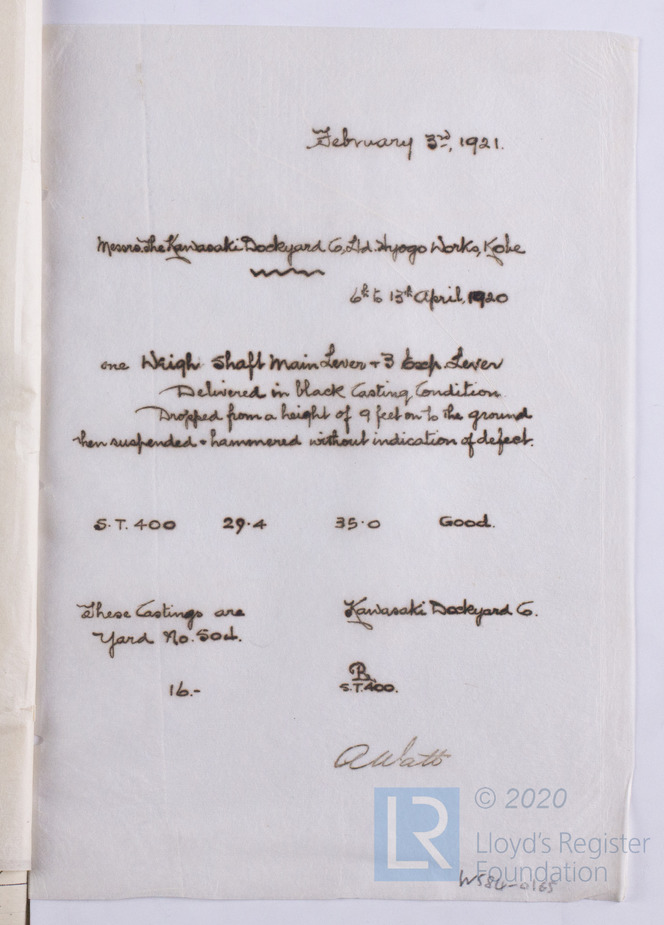 February 3rd, 1921.
Messrs. The Kawasaki Dockyard Co, Ltd. Hyogo Works, Kobe
6th to 13th April, 1920
one Weigh Shaft Main Lever + 3 Lever
Delivered in black Casting Condition.
Dropped from a height of 9 feet on to the ground
then suspended + hammered without indication of defect.
S.T. 400 29.4 35.0 Good.
These Castings are Kawasaki Dockyard Co.
Yard No.
16.- R.
S.T.400.
A Watt
LR
© 2020
Lloyd's Register
Foundation
W584-0165